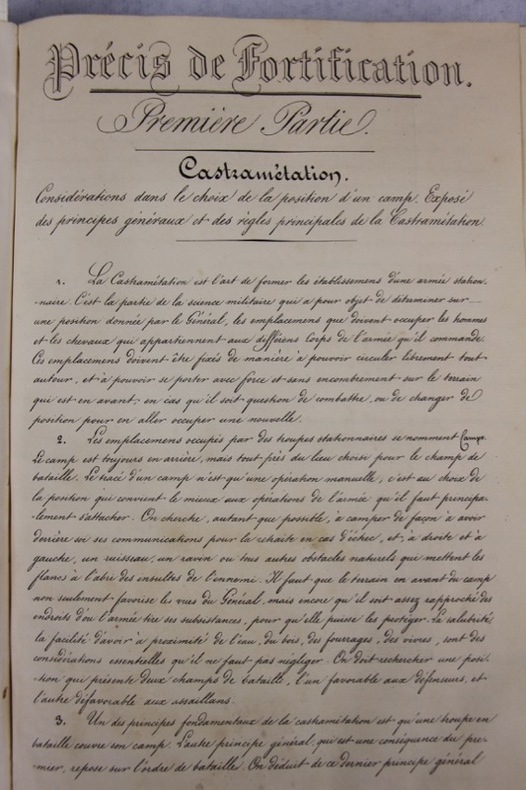 Précis de Fortification.
Première Partie.
Castramétation.
Considérations dans le choix de la position d'un camp. Exposé
des principes généraux et des règles principales de la Castramétation.
1. La Castramétation est l'art de former les établissemens d'une armée station-
-naire. C'est la partie de la science militaire qui a pour objet de déterminer sur
une position donnée par le Général, les emplacemens que doivent occuper les hommes
et les chevaux qui appartiennent aux différens Corps de l'armée qu'il commande.
Ces emplacemens doivent être fixés de manière à pouvoir circuler librement tout
autour, et à pouvoir se porter avec force et sans encombrement sur le terrain
qui est en avant, en cas qu'il soit question de combattre, ou de changer de
position pour en aller occuper une nouvelle.
2. Les emplacemens occupés par des troupes stationnaires se nomment Camps.
Le camp est toujours en arrière, mais tout près du lieu choisi pour le champ de
bataille. Le tracé d'un camp n'est qu'une opération manuelle, c'est au choix de
la position qui convient le mieux aux opérations de l'armée qu'il faut principa-
-lement s'attacher. On cherche, autant que possible, à camper de façon à avoir
derrière soi ses communications pour la retraite en cas d'échec, et, à droite et à
gauche, un ruisseau, un ravin ou tous autres obstacles naturels que mettent les
flancs à l'abri des insultes de l'ennemi. Il faut que le terrain en avant du camp
non seulement favorise les vues du Général, mais encore qu'il soit assez rapproché des
endroits d'où l'armée tire ses subsistances, pour qu'elle puisse les protéger. La salubrité,
la facilité d'avoir à proximité de l'eau, du bois, des fourrages, des vivres, sont des
considérations essentielles qu'il ne faut pas négliger. On doit rechercher une posi-
-tion qui présente deux champs de bataille, l'un favorable aux défenseurs, et
l'autre défavorable aux assaillans.
3. Un des principes fondamentaux de la castramétation est qu'une troupe en
bataille couvre son camp. L'autre principe général, qui est une conséquence du pre-
-mier, repose sur l'ordre de bataille. On déduit de ce dernier principe général